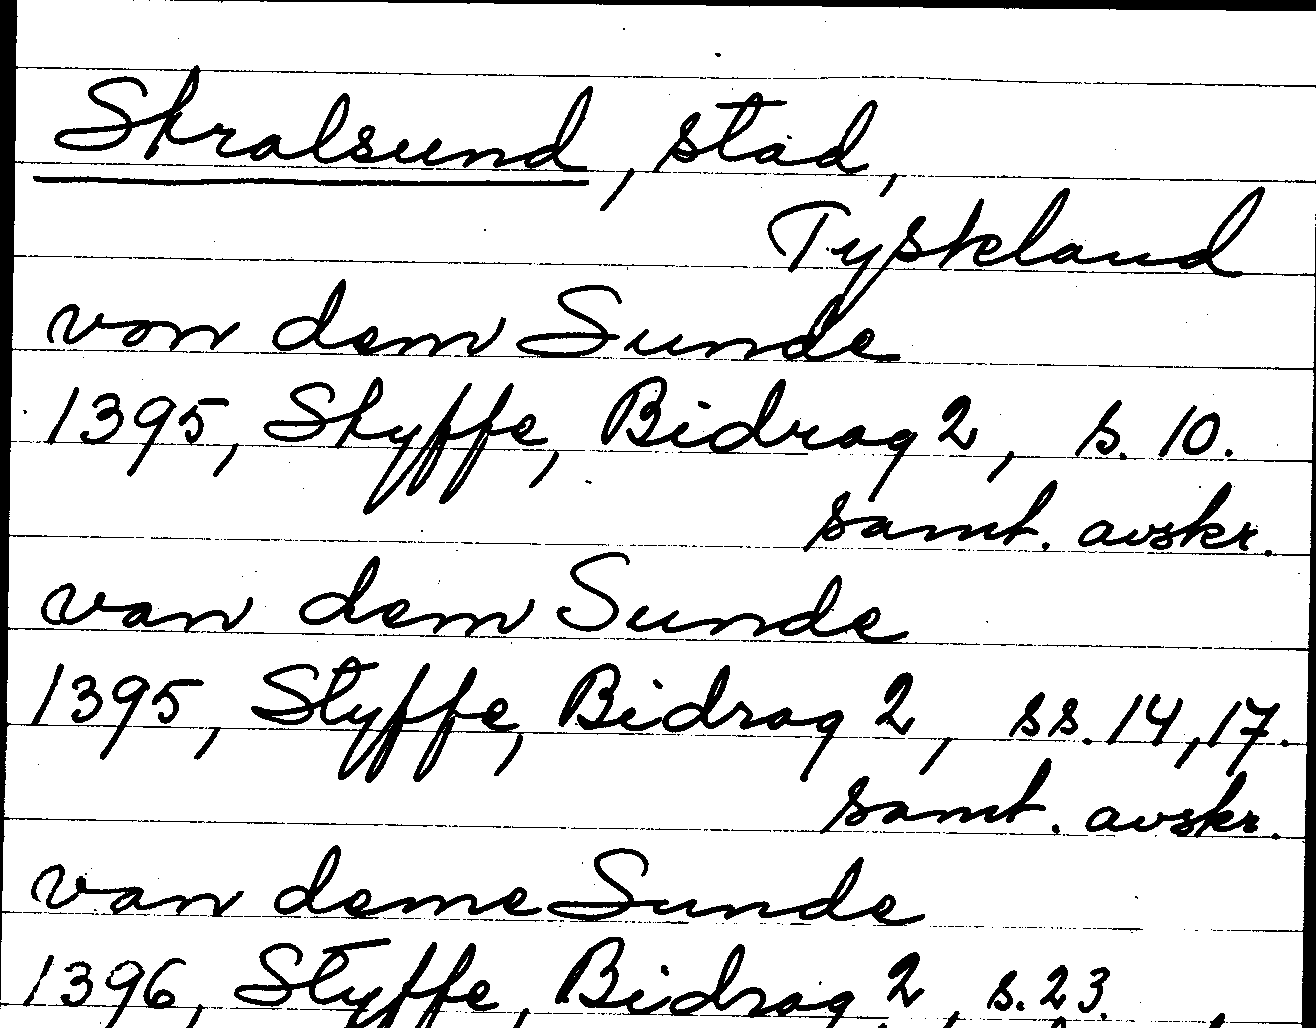 Stralsund, stad,
Tyskland
von dem Sunde
1395, Styffe, Bidrag 2, s. 10.
samt. avskr.
van dem Sunde
1395, Styffe, Bidrag 2, ss. 14, 17.
samt. avskr.
van deme Sunde
1396, Styffe, Bidrag 2, s. 23.